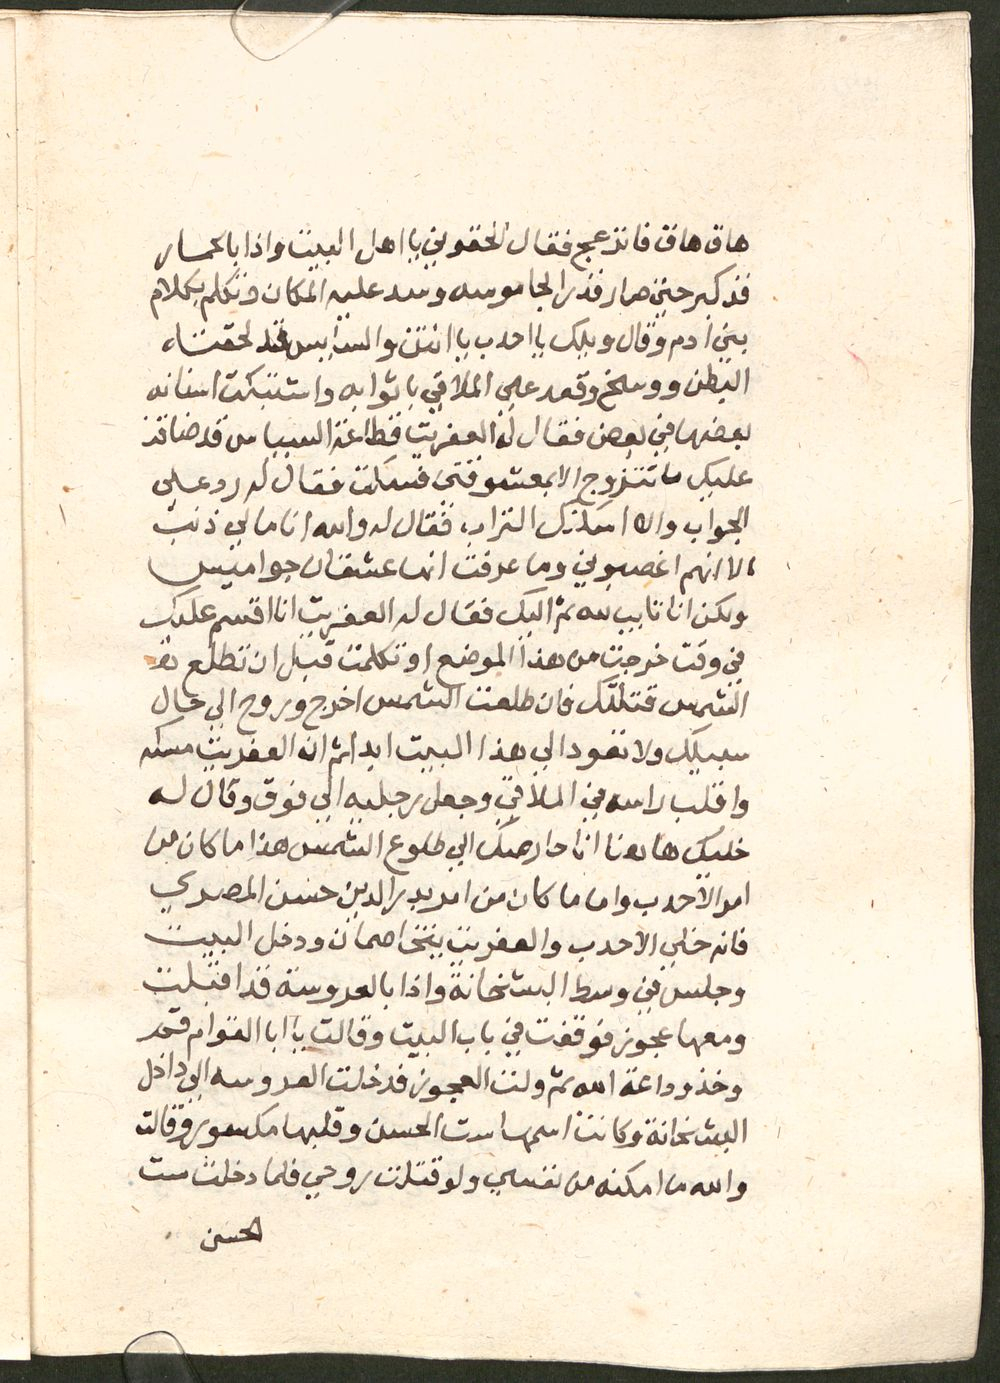 هاق هاق فانزعج فقال الحقوني يا اهل البيت واذا بالحمار
قد كبر حتي صار قدر الجاموسه وسد عليه المكان وتكلم بكلام
بني ادم وقال ويلك يا احدب يا انتن والسايس قد لحقتاه
البطن ووسخ وقعد علي الملاقي باثوابه واشتبكت اسنانه
بعضها في بعض فقال له العفريت قطاعة السبيا من قد ضاقت
عليك ما تتزوج الا بمعشوقتي فسكت فقال له رد علي
الجواب والا اسكنك التراب فقال له والله انا مالي ذنب
الا انهم اغصبوني وما عرفت انها عشقان جواميس
ولكن انا تايب لله ثم اليك فقال له العفريت انا اقسم عليك
في وقت خرجت من هذا الموضع او تكلمت قبل ان تطلع
الشمس قتلتك فان طلعت الشمس اخرج وروح الي حال
سبيلك ولا تعود الي هذا البيت ابدا ثم ان العفريت مسكه
واقلب راسه في الملاقي وجعل رجليه الي فوق وقال له
خليك هاهنا انا حارصك الي طلوع الشمس هذا ما كان من
امر الاحدب واما ما كان من امر بدر الدين حسن المصري
فانه خلي الاحدب والعفريت يتخاصمان ودخل البيت
وجلس في وسط البشخانة واذا بالعروسة قد اقبلت
ومعها عجوز فوقفت في باب البيت وقالت يا ابا القوام قم
وخذ وداعة الله ثم ولت العجوز فدخلت العروسه الي داخل
البشخانة وكانت اسمها ست الحسن وقلبها مكسور وقالت
والله ما امكنه من نفسي ولو قتلت روحي فلما دخلت ست
الحسن